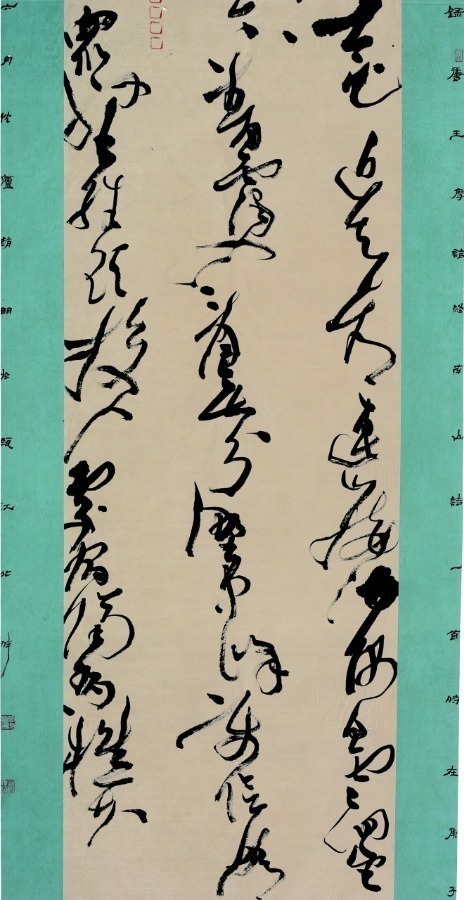 錄唐王摩詰終南山詩一首時左庚子
太乙近天都連山接海隅白雲迴望
合青靄入看無分野中峰變陰晴
眾壑殊欲投人處宿隔水問樵夫
六月廬趙明於漢江北